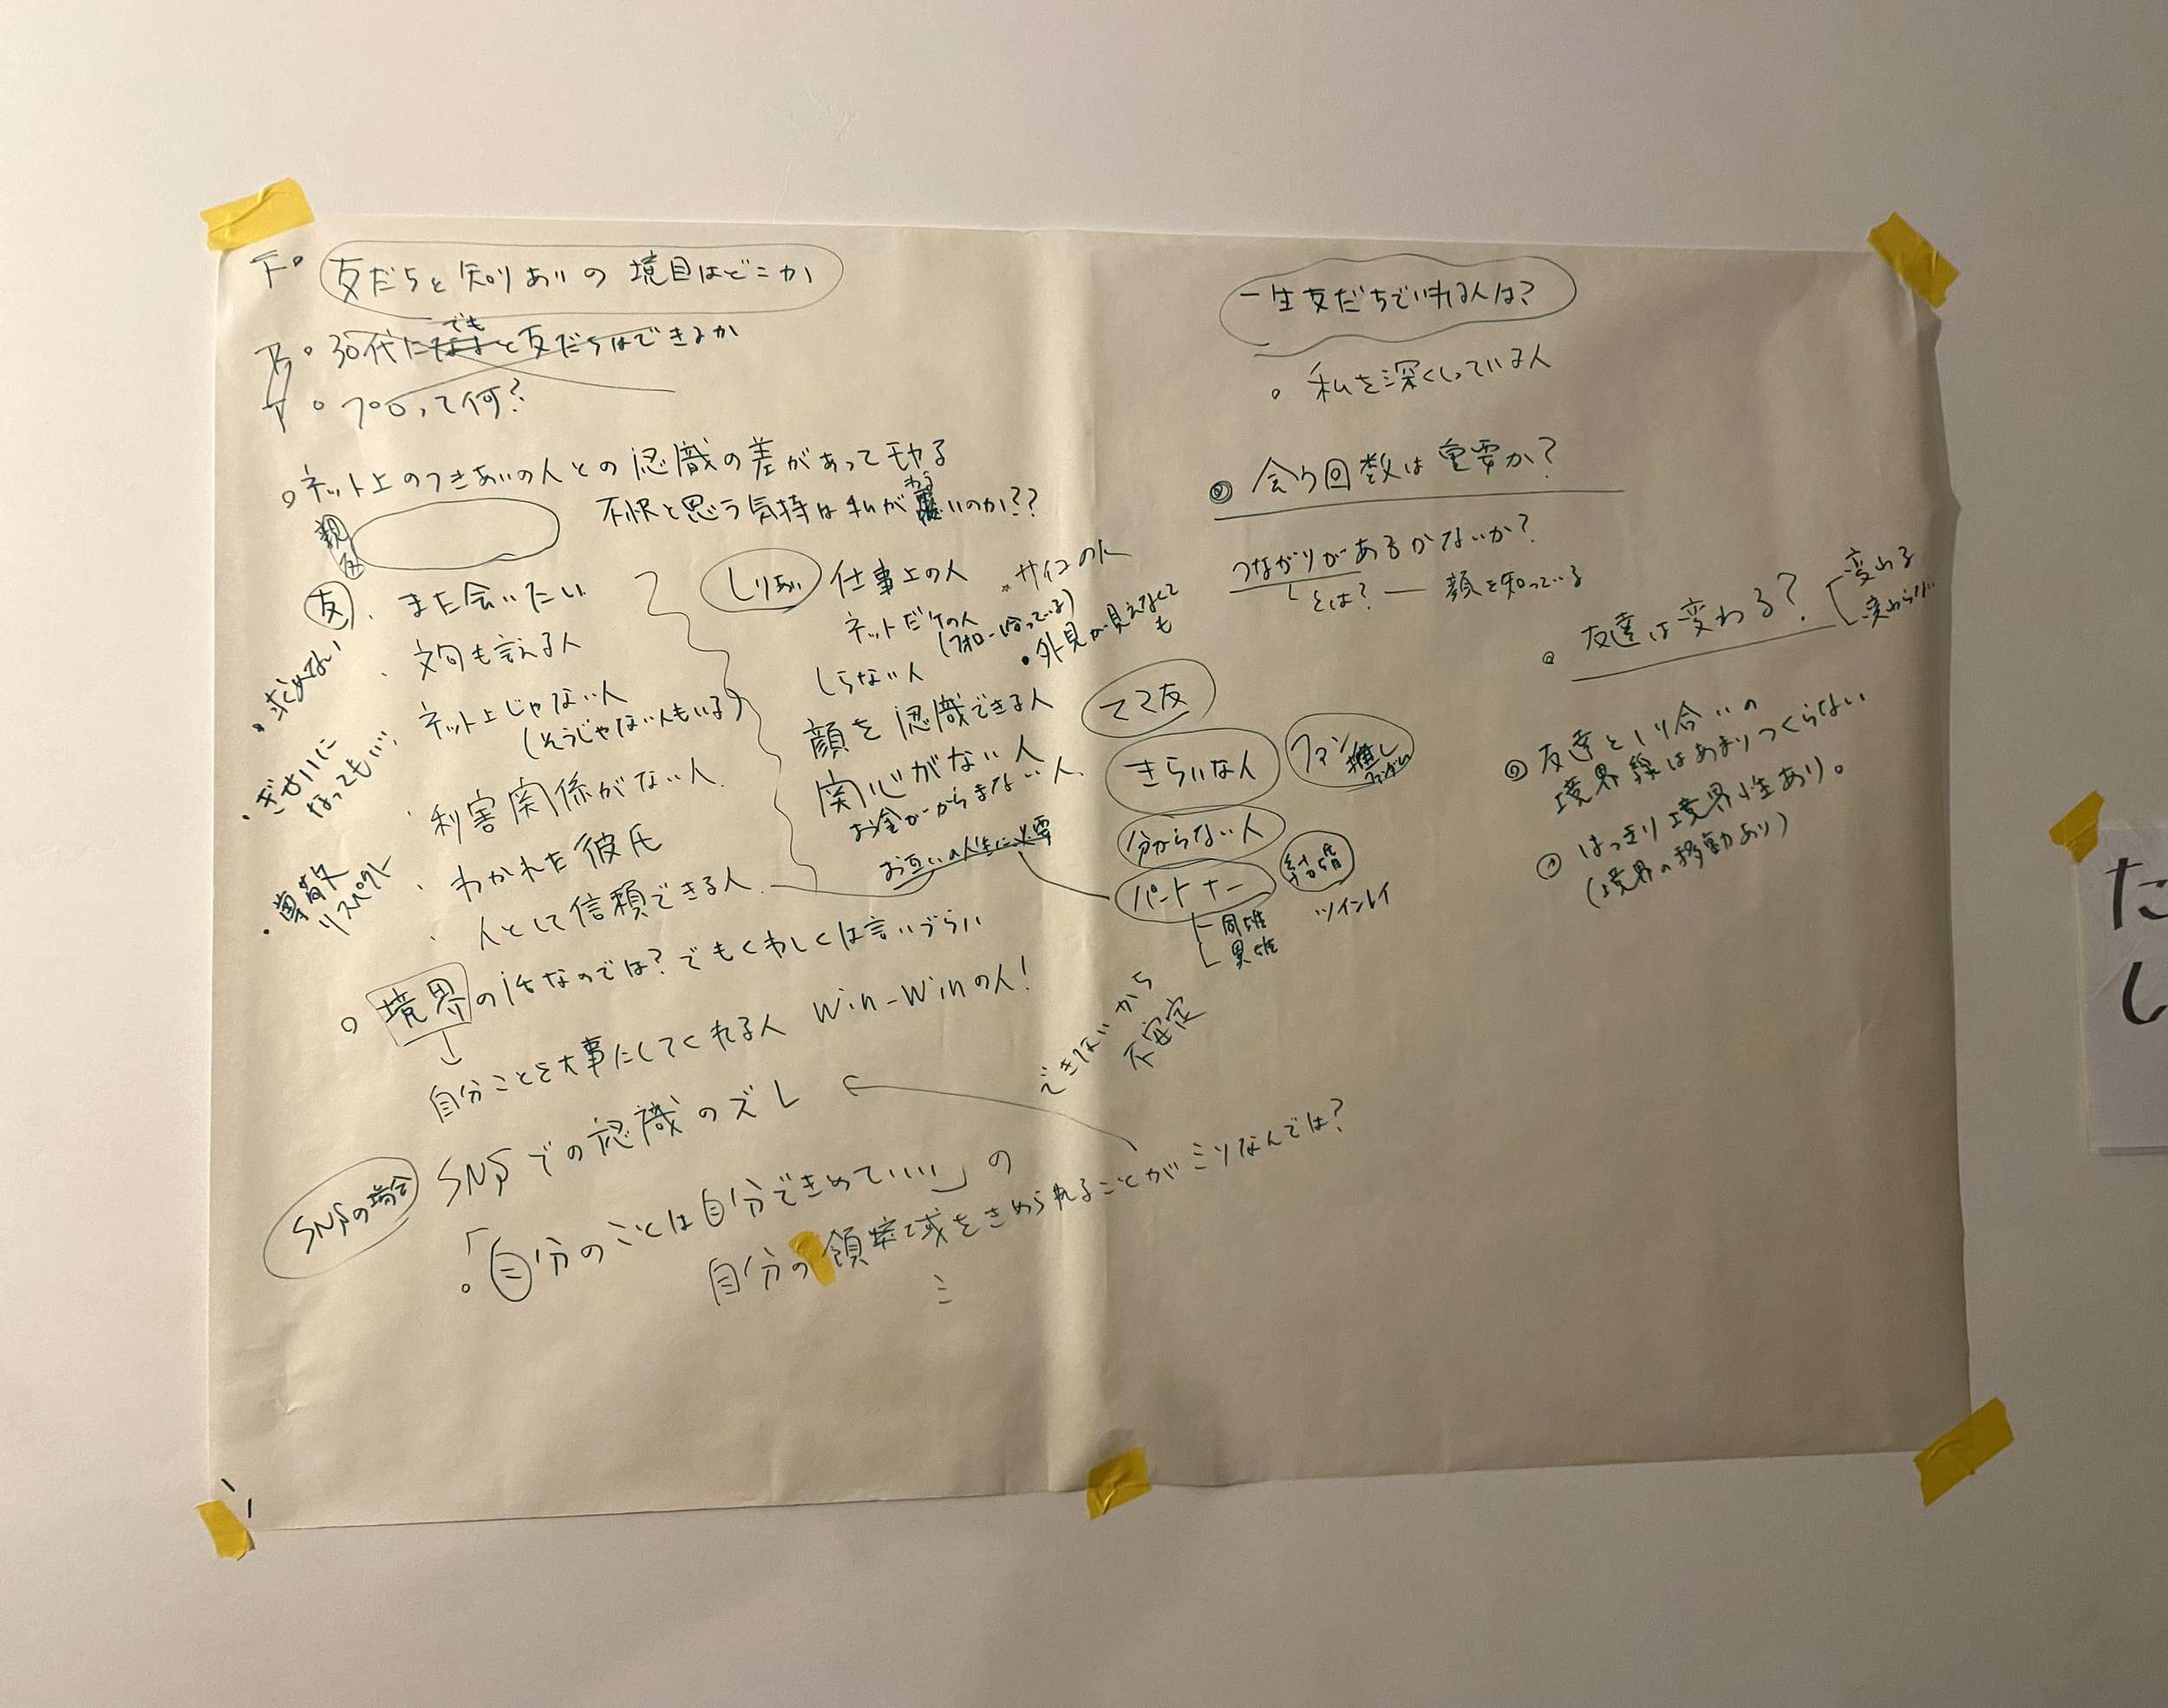 友だちと知りあいの境目はどこか
30代にでもと友だちはできるか
プロって何?
ネット上のつきあいの人との認識の差があってモヤる
不快と思う気持は私がわるいのか??
親
友
また会いたい
文句も言える人
ネット上じゃない人
(そうじゃない人もいる)
利害関係がない人
わかれた彼氏
人として信頼できる人
・求めない
・ぎせいに
なってもいい
・尊敬
リスペクト
しりあい
仕事上の人
ネットだけの人
しらない人
・外見が見えなくて
も
顔を認識できる人
関心がない人
お金がからまない人
お互いの人生に必要
ママ友
きらいな人
ファン
推し
分からない人
パートナー
結婚
ツインレイ
同性
異性
境界の話なのでは?でもくわしくは言いづらい
自分ことを大事にしてくれる人 Win-Winの人!
できないから
不安定
SNSの場合
SNSでの認識のズレ
「自分のことは自分できめていい」の
自分の領域をきめられることがミソなんでは?
一生友だちでいれる人は?
私を深くしっている人
会う回数は重要か?
つながりがあるかないか?
とは? ― 顔を知っている
友達は変わる?
変わる
変わらない
友達としり合いの
境界線はあまりつくらない
はっきり境界性あり。
(境界の移動あり)
た
し